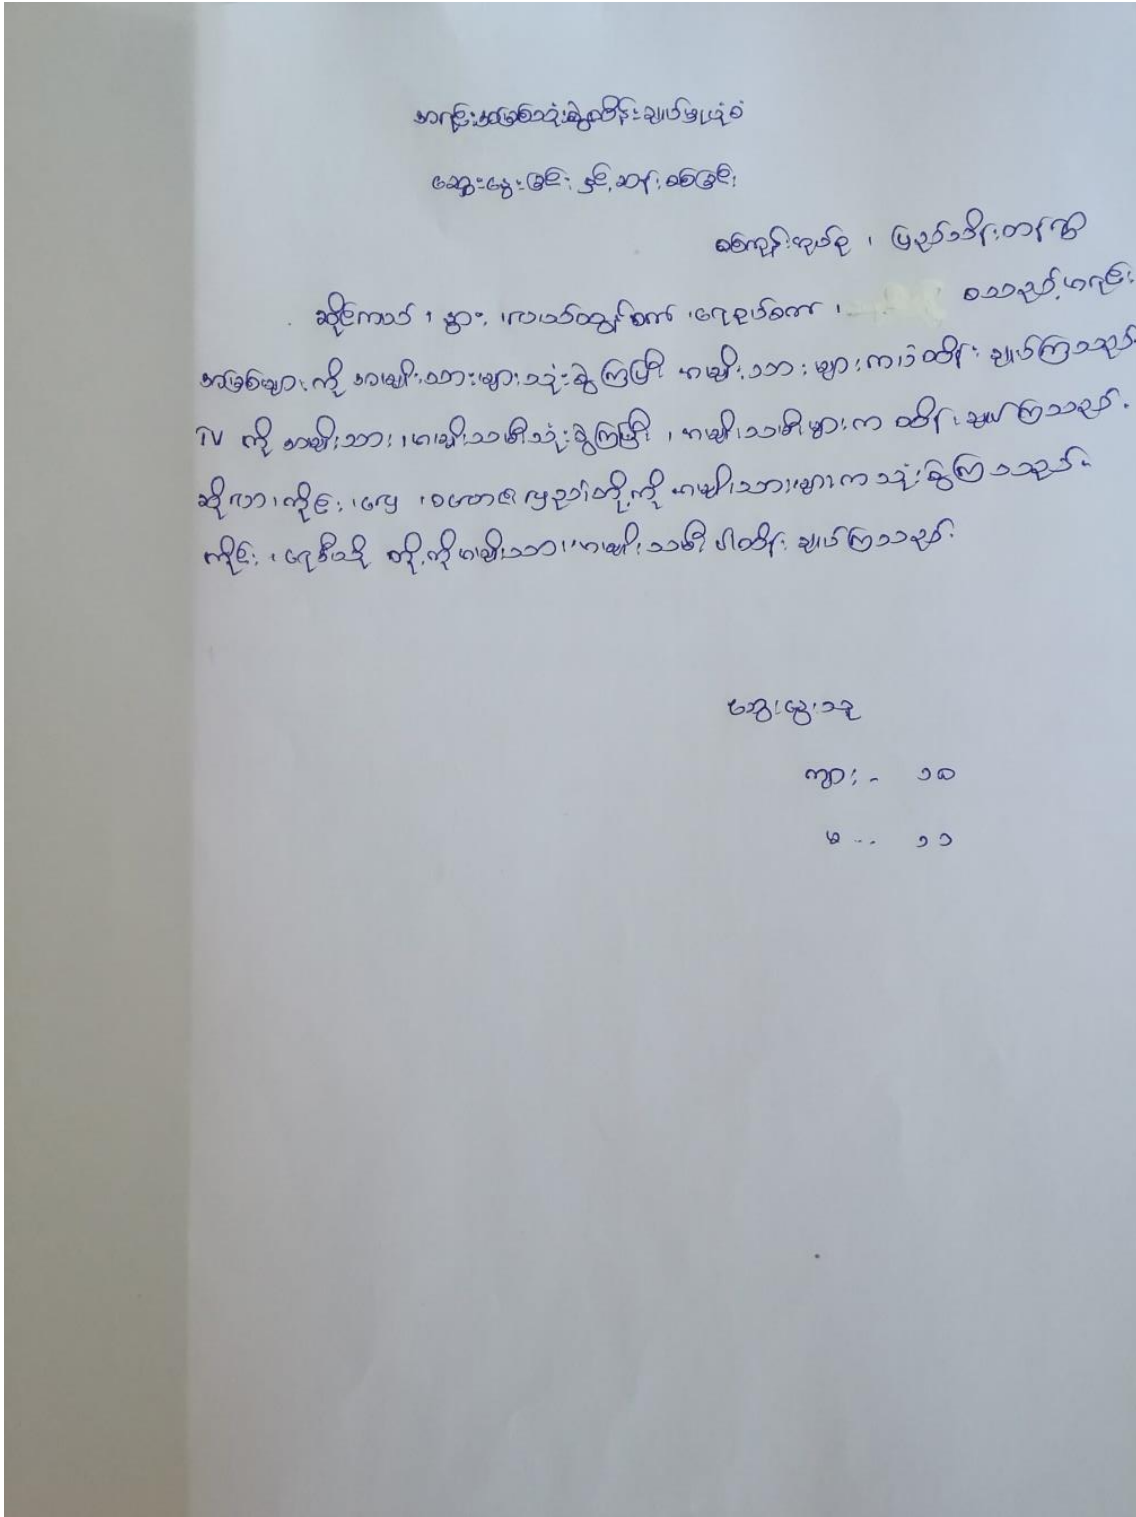 အရင်းအမြစ်သုံးစွဲထိန်းချုပ်မှုပုံစံ
ဆွေးနွေးခြင်း နှင့် ဆန်းစစ်ခြင်း
စစ်ကုန်းအုပ်စု ၊ ပြည်သိမ်းတန်ဏွာ
ဆိုင်ကယ် ၊ နွား ၊ လယ်ထွန်စက် ၊ ရေစုပ်စက် ၊ စသည့် အရင်း
အမြစ်များကို အမျိုးသားများသုံးစွဲကြပြီး အမျိုးသားများကပဲထိန်းချုပ်ကြသည်။
TV ကို အမျိုးသား ၊ အမျိုးသမီးသုံးစွဲကြပြီး ၊ အမျိုးသမီးများက ထိန်းချုပ်ကြသည်။
ဆိုလာ ၊ ကိုင်း ၊ လှေ ၊ တို့ကို အမျိုးသားများက သုံးစွဲကြသည်။
ကိုင်း ၊ တို့ကို အမျိုးသား ၊ အမျိုးသမီး ပါထိန်းချုပ်ကြသည်။
ဆွေးနွေးသူ
ကျား - ၁၈
မ - - ၁၁